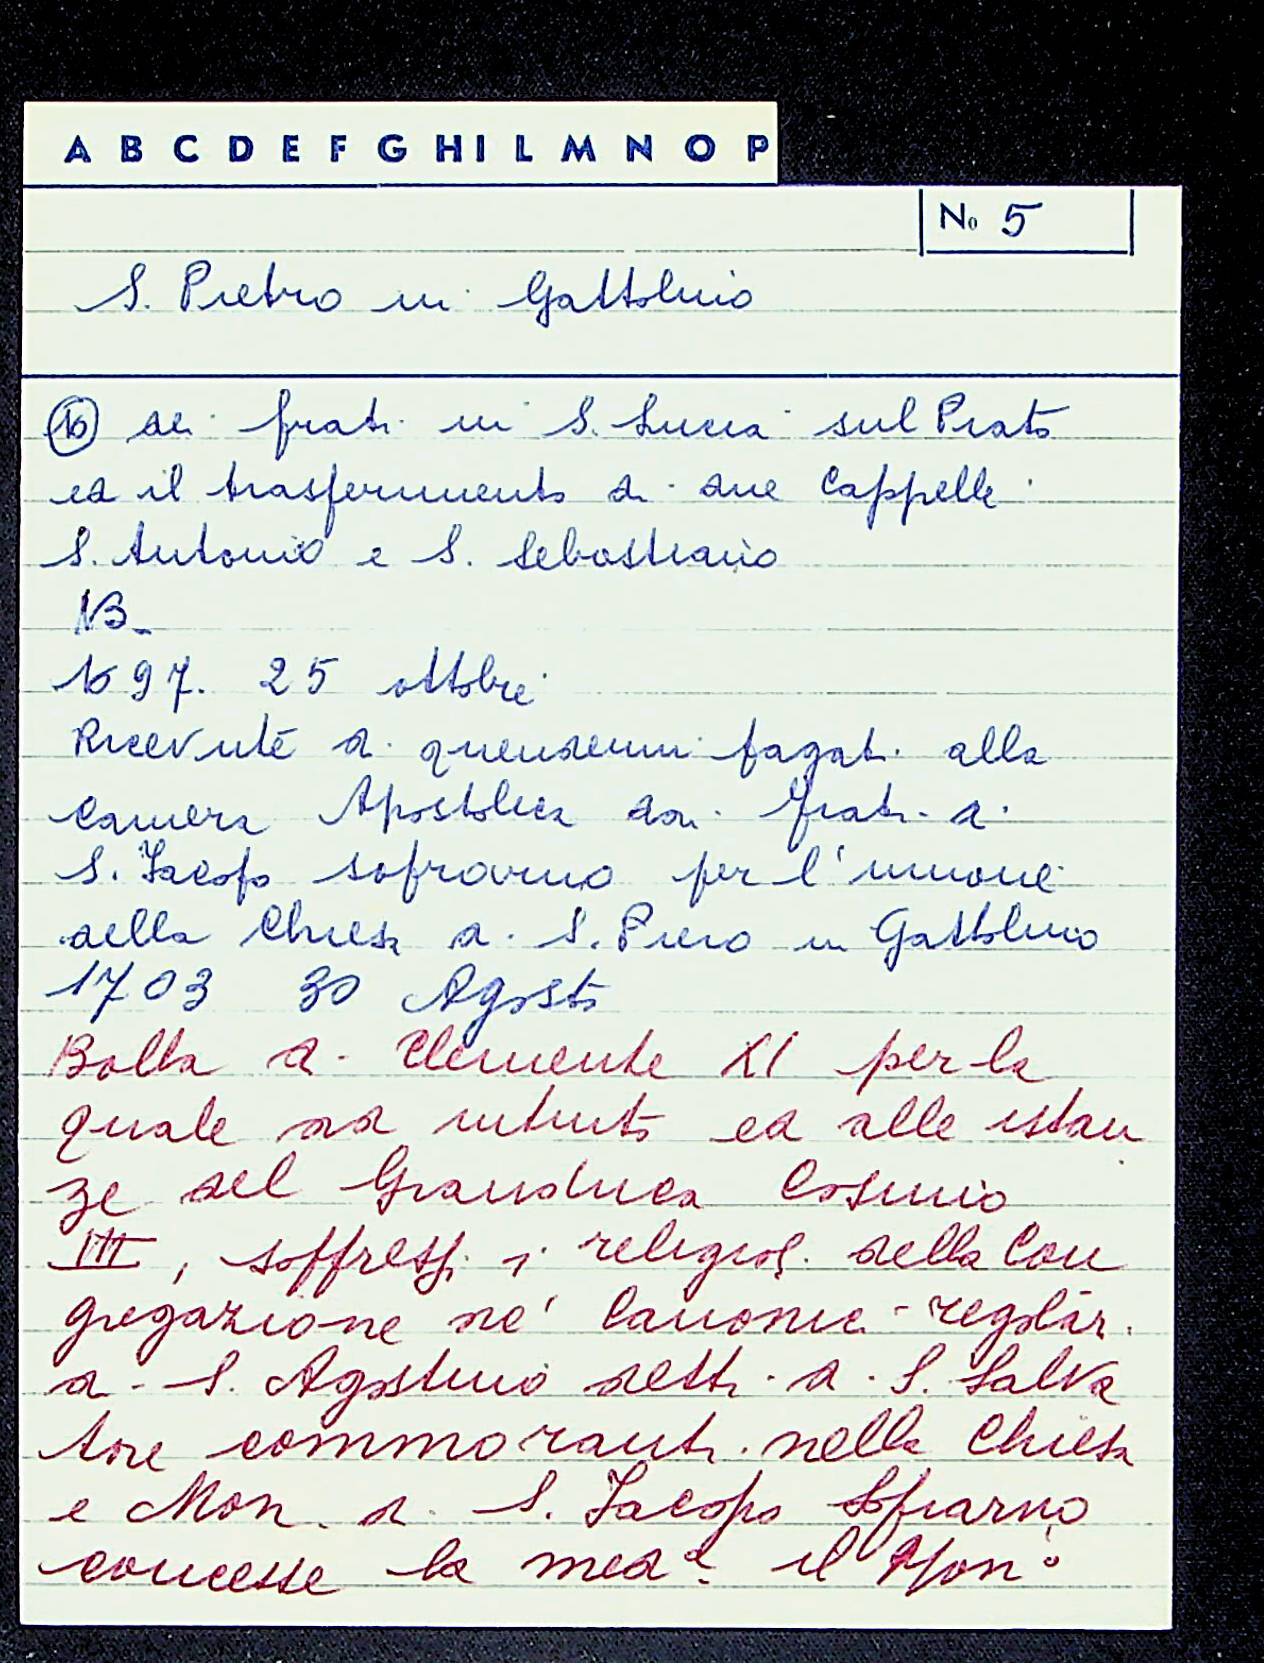 A B C D E F G H I L M N O P
No 5
S. Pietro in Gattolino
16 dei frati in S. Lucia sul Prato
ed il trasferimento di due Cappelle
S. Antonio e S. Sebastiano
NB.
1697. 25 ottobre
Ricevute di quindenni pagati alla
Camera Apostolica dai frati di
S. Jacopo sopravno per l'unione
della Chiesa di S. Piero in Gattolino
1703 30 Agosto
Bolla di Clemente XI per la
quale ad intuito ed alle istan
ze del Granduca Cosimo
III, soppressi i religiosi della Con
gregazione de' Canonici regolari
di S. Agostino detti di S. Salva
tore commoranti nella Chiesa
e Mon. di S. Jacopo Soprarno
concesse la med.a il Mon.o